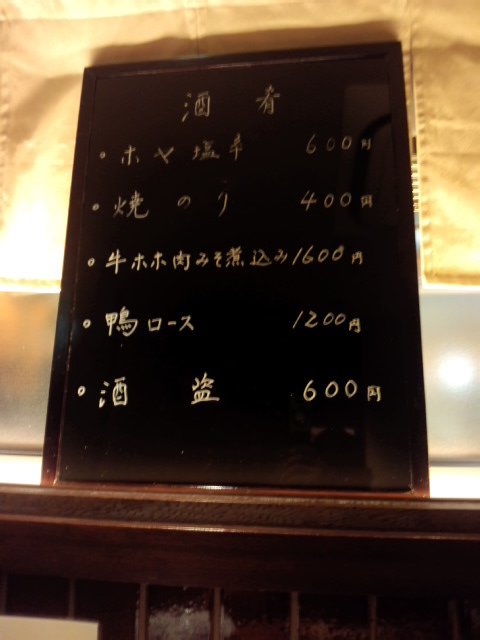 酒 肴
○ホヤ塩辛 600円
○焼のり 400円
○牛ホホ肉みそ煮込み 1600円
○鴨ロース 1200円
○酒盗 600円